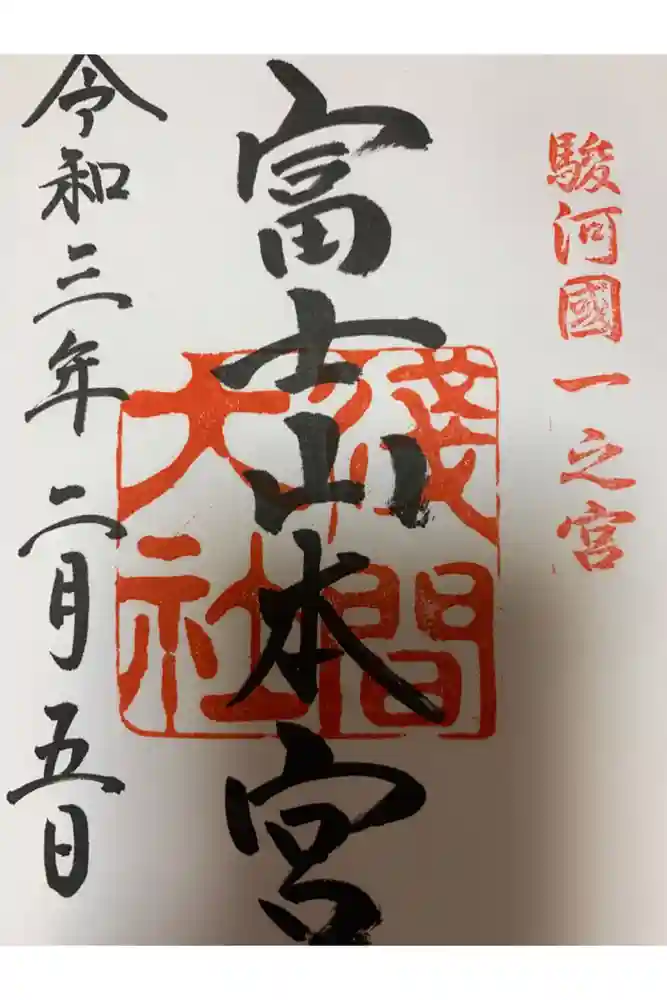 駿河國一之宮
富士山本宮
淺間大社
令和三年二月五日